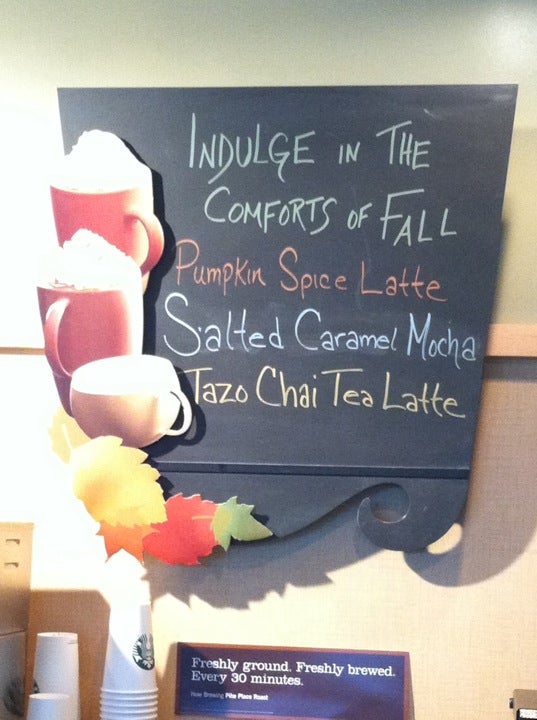 INDULGE IN THE
COMFORTS OF FALL
Pumpkin Spice Latte
Salted Caramel Mocha
Tazo Chai Tea Latte
Freshly ground. Freshly brewed.
Every 30 minutes.
Now Brewing Pike Place Roast